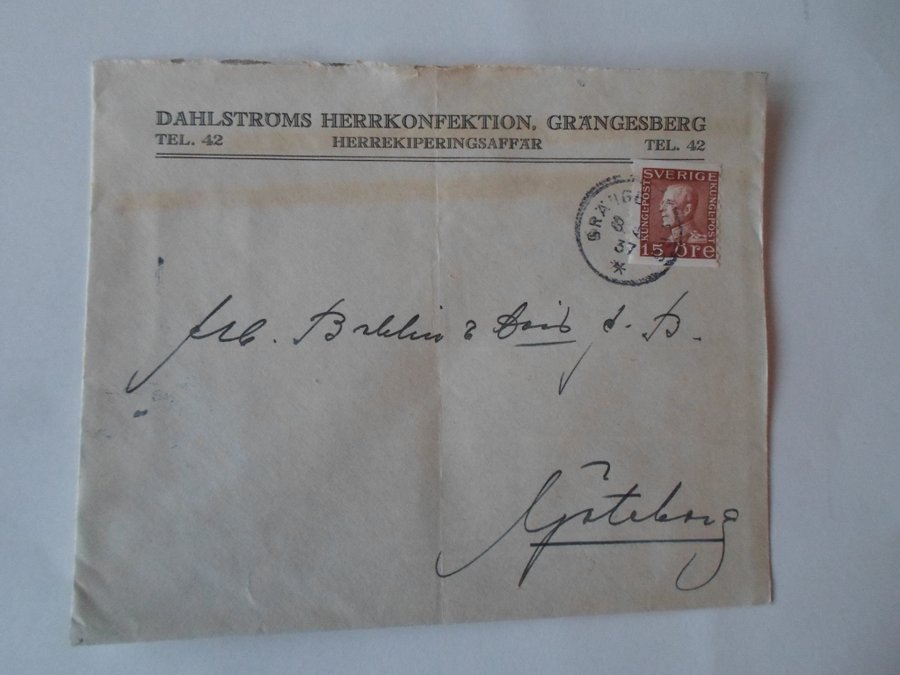 DAHLSTRÖMS HERRKONFEKTION, GRÄNGESBERG
TEL. 42 HERREKIPERINGSAFFÄR TEL. 42
SVERIGE
KUNGL·POST KUNGL·POST
15 ÖRE
GRÄNGE
37
Göteborg